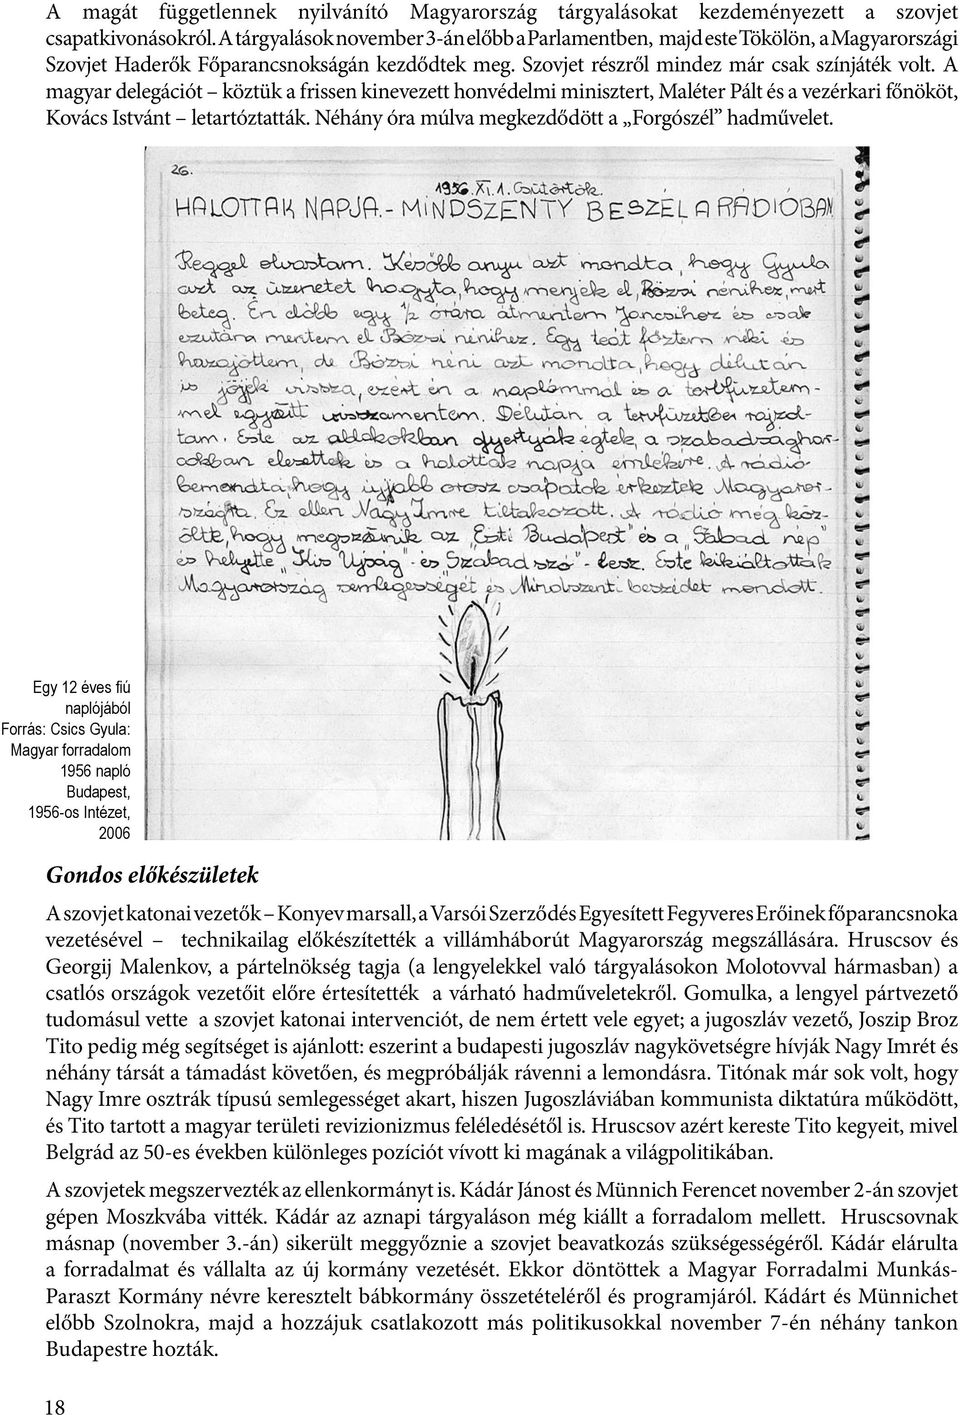 A magát függetlennek nyilvánító Magyarország tárgyalásokat kezdeményezett a szovjet
csapatkivonásokról. A tárgyalások november 3-án előbb a Parlamentben, majd este Tökölön, a Magyarországi
Szovjet Haderők Főparancsnokságán kezdődtek meg. Szovjet részről mindez már csak színjáték volt. A
magyar delegációt – köztük a frissen kinevezett honvédelmi minisztert, Maléter Pált és a vezérkari főnököt,
Kovács Istvánt – letartóztatták. Néhány óra múlva megkezdődött a „Forgószél” hadművelet.
26.
1956.XI.1.Csütörtök.
HALOTTAK NAPJA.- MINDSZENTY BESZÉL A RÁDIÓBAN
Reggel olvastam. Később anyu azt mondta, hogy Gyula
azt az üzenetet hagyta, hogy menjek el, Bözsi nénihez, mert
beteg. Én előbb egy 1/2 órára átmentem Jancsihoz és csak
ezután mentem el Bözsi nénihez. Egy teát főztem neki és
hazajöttem, de Bözsi néni azt mondta, hogy délután
is jöjjek vissza, ezért én a naplómmal és a tervfüzetem-
mel együtt visszamentem. Délután a tervfüzetbe rajzol-
tam. Este az ablakokban gyertyák égtek, a szabadsághar-
cokban elesettek és a halottak napja emlékére. A rádió
bemondta, hogy újjabb orosz csapatok érkeztek Magyaror-
szágra. Ez ellen Nagy Imre tiltakozott. A rádió még köz-
ölte, hogy megszűnik az „Esti Budapest” és a „Szabad nép”
és helyette „Kis Ujság” - és „Szabad szó” - lesz. Este kikiáltották
Magyarország semlegességét és Mindszenti beszédet mondott.
Egy 12 éves fiú
naplójából
Forrás: Csics Gyula:
Magyar forradalom
1956 napló
Budapest,
1956-os Intézet,
2006
Gondos előkészületek
A szovjet katonai vezetők – Konyev marsall, a Varsói Szerződés Egyesített Fegyveres Erőinek főparancsnoka
vezetésével – technikailag előkészítették a villámháborút Magyarország megszállására. Hruscsov és
Georgij Malenkov, a pártelnökség tagja (a lengyelekkel való tárgyalásokon Molotovval hármasban) a
csatlós országok vezetőit előre értesítették a várható hadműveletekről. Gomulka, a lengyel pártvezető
tudomásul vette a szovjet katonai intervenciót, de nem értett vele egyet; a jugoszláv vezető, Joszip Broz
Tito pedig még segítséget is ajánlott: eszerint a budapesti jugoszláv nagykövetségre hívják Nagy Imrét és
néhány társát a támadást követően, és megpróbálják rávenni a lemondásra. Titónak már sok volt, hogy
Nagy Imre osztrák típusú semlegességet akart, hiszen Jugoszláviában kommunista diktatúra működött,
és Tito tartott a magyar területi revizionizmus feléledésétől is. Hruscsov azért kereste Tito kegyeit, mivel
Belgrád az 50-es években különleges pozíciót vívott ki magának a világpolitikában.
A szovjetek megszervezték az ellenkormányt is. Kádár Jánost és Münnich Ferencet november 2-án szovjet
gépen Moszkvába vitték. Kádár az aznapi tárgyaláson még kiállt a forradalom mellett. Hruscsovnak
másnap (november 3.-án) sikerült meggyőznie a szovjet beavatkozás szükségességéről. Kádár elárulta
a forradalmat és vállalta az új kormány vezetését. Ekkor döntöttek a Magyar Forradalmi Munkás-
Paraszt Kormány névre keresztelt bábkormány összetételéről és programjáról. Kádárt és Münnichet
előbb Szolnokra, majd a hozzájuk csatlakozott más politikusokkal november 7-én néhány tankon
Budapestre hozták.
18